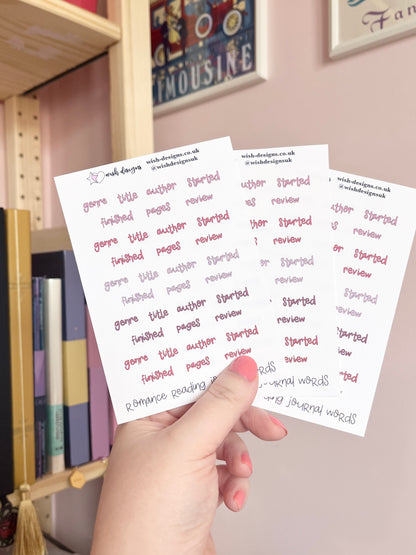 LIMOUSINE
Fan
wish designs
wish-designs.co.uk
@wishdesignsuk
genre title author Started
finished pages review
genre title author Started
finished pages review
genre title author Started
finished pages review
genre title author Started
finished pages review
genre title author Started
finished pages review
Romance Reading
words
wish-designs.co.uk
@wishdesignsuk
author Started
review
author Started
review
Started
review
Started
review
Started
review
rnal words
wish-designs.co.uk
@wishdesignsuk
Started
review
Started
review
Started
review
Started
review
Started
ing journal words